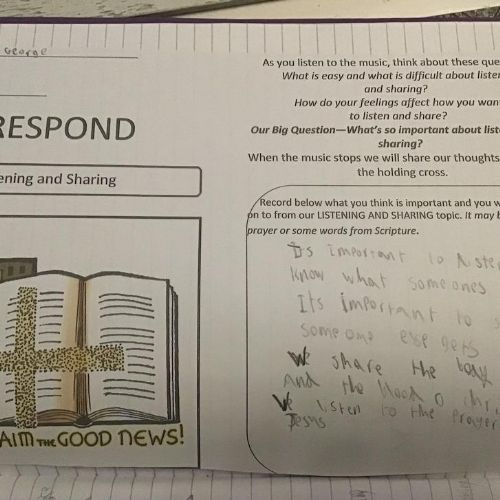 George
RESPOND
ening and Sharing
AIM THE GOOD NEWS!
As you listen to the music, think about these que
What is easy and what is difficult about liste
and sharing?
How do your feelings affect how you wan
to listen and share?
Our Big Question—What's so important about liste
sharing?
When the music stops we will share our thoughts
the holding cross.
Record below what you think is important and you w
on to from our LISTENING AND SHARING topic. It may b
prayer or some words from Scripture.
Its important to liste
know what someones
Its important to s
someone else gets
We share the body
And the blood o chri
We listen to the prayer
Jesus